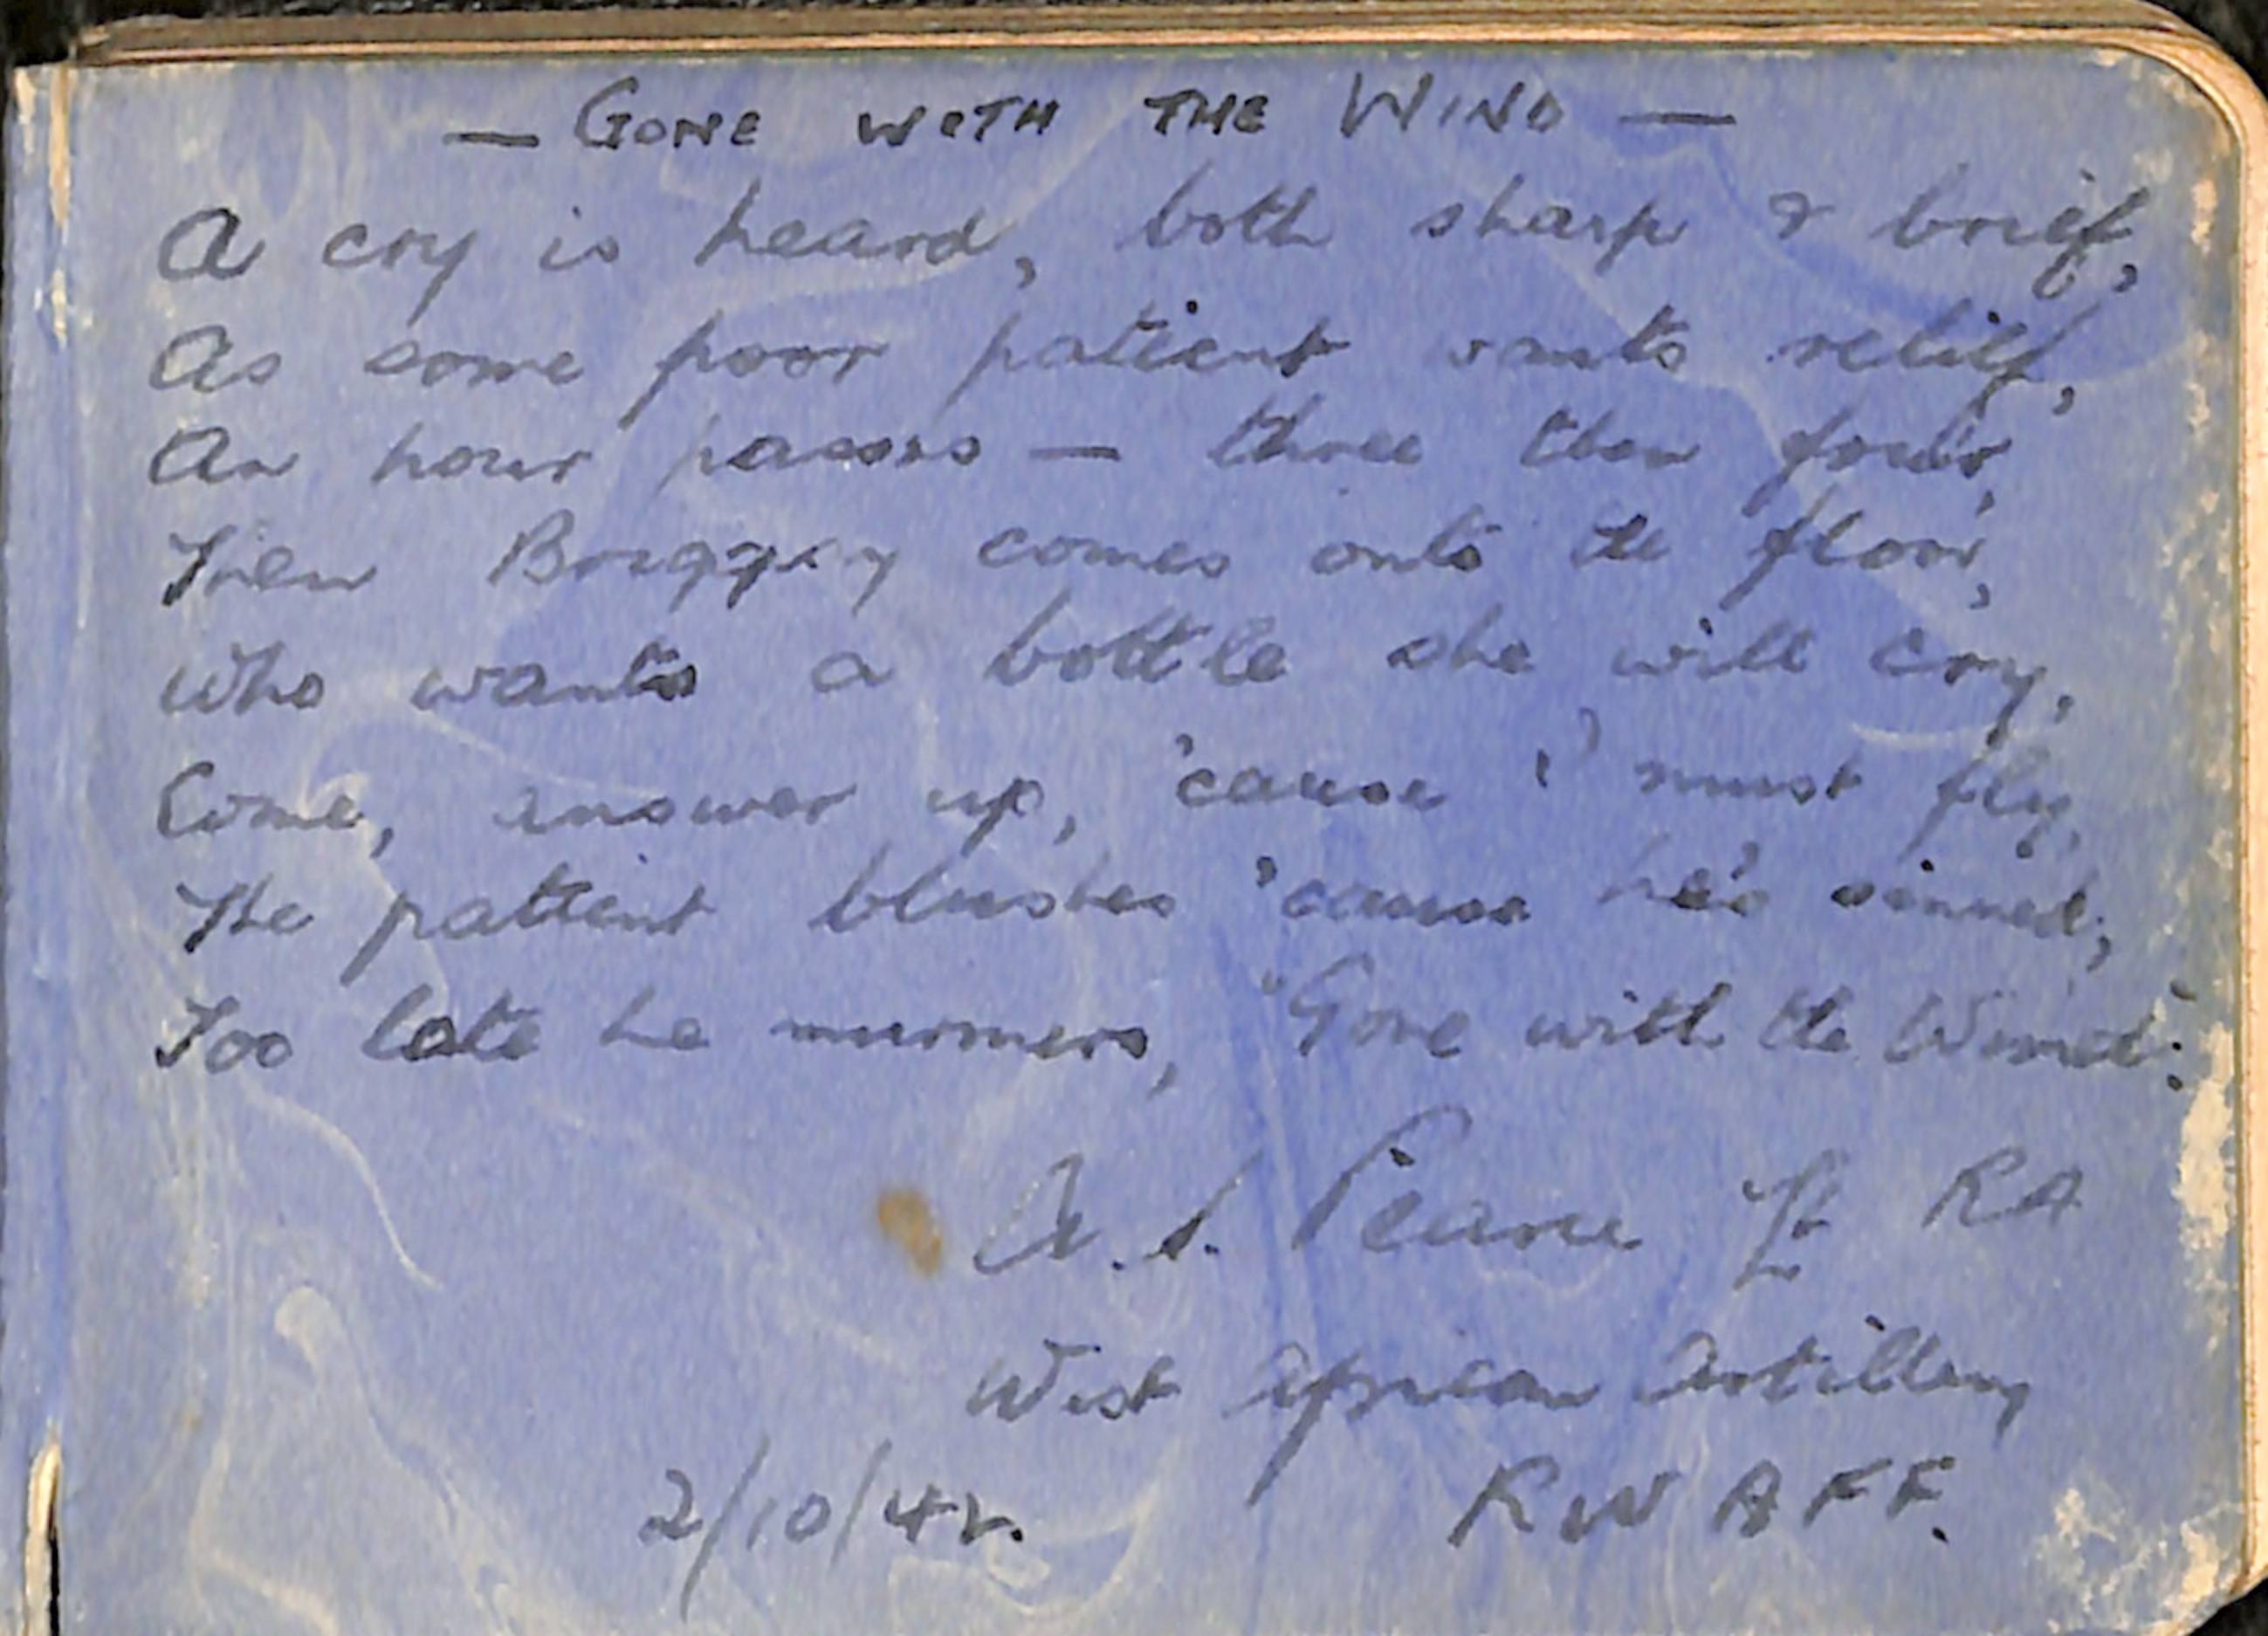 — GONE WITH THE WIND —
A cry is heard, both sharp & brief,
As some poor patient wants relief,
An hour passes — three then four,
Then Briggsy comes onto the floor,
Who wants a bottle she will cry,
Come, answer up, 'cause I must fly,
The patient blushes 'cause he's sinned,
Too late he murmers, "Gone with the Wind".
A. S. Lt RA
West African Artillery
2/10/42. RWAFF.